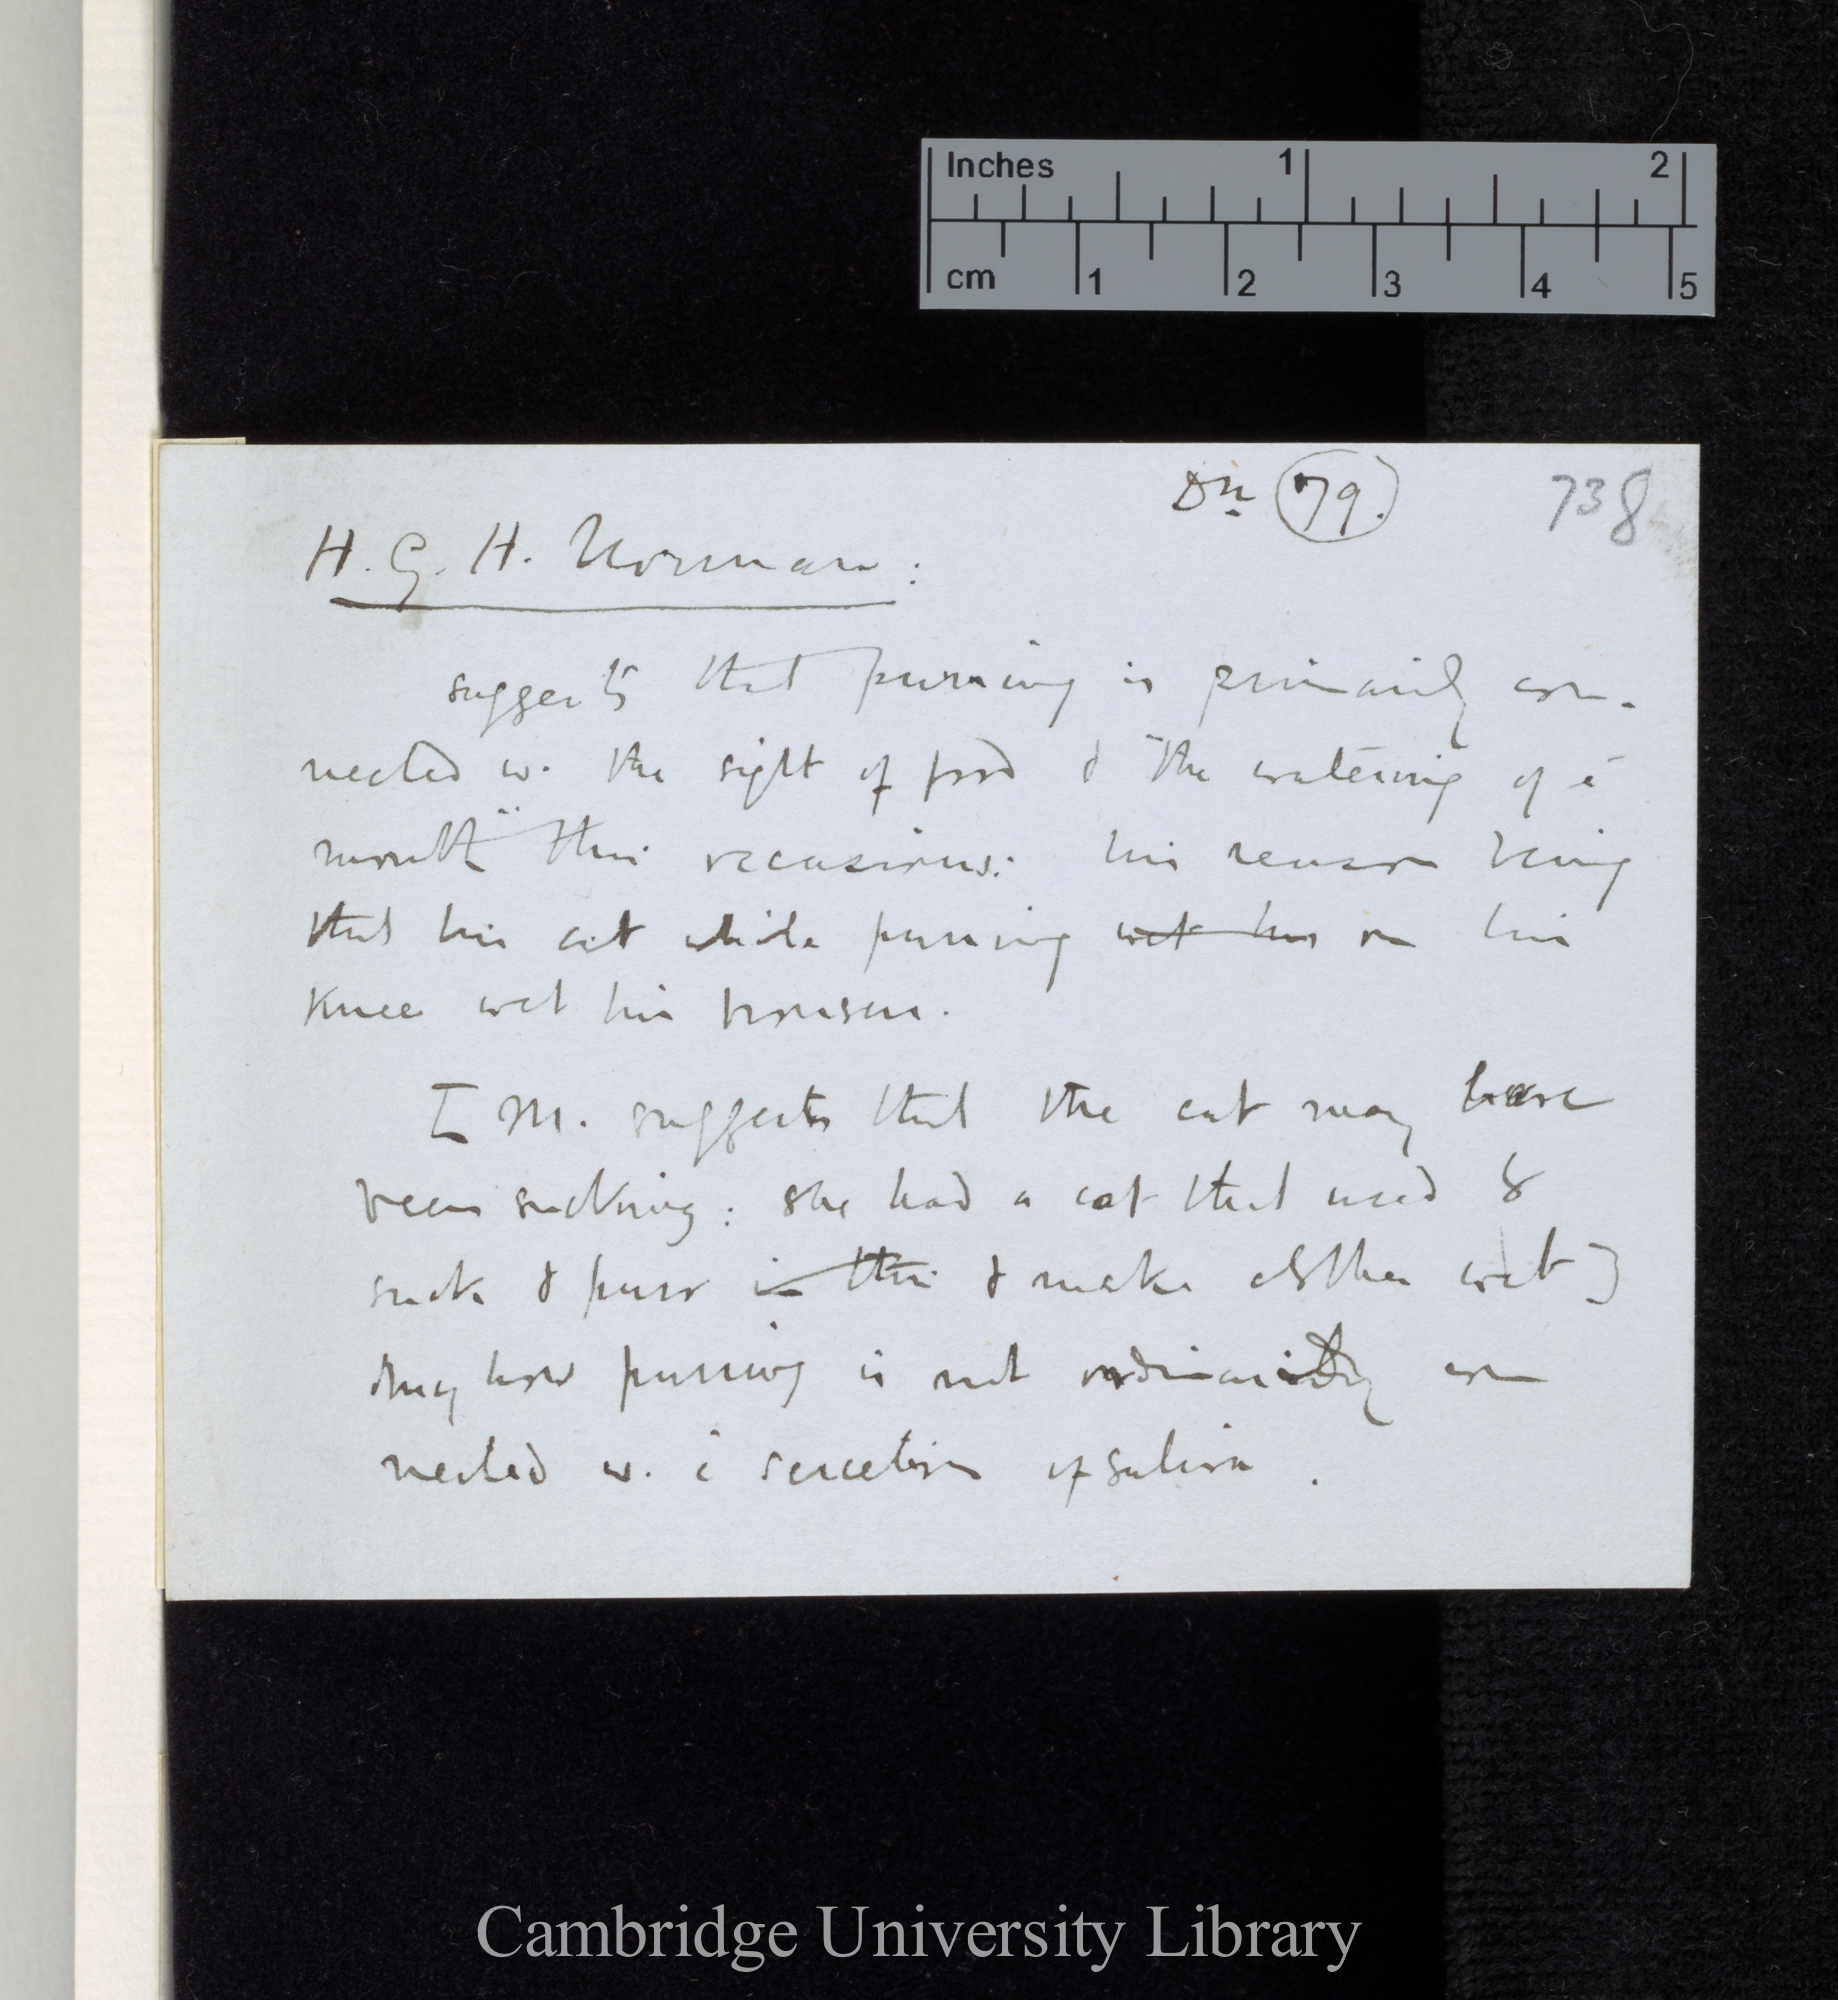 Inches 1 2
cm 1 2 3 4 5
Dn 79. 738
H. G. H. Norman:
suggests that purring is primarily con-
nected w. the sight of food & "the watering of ē
mouth" this occasions: his reason being
that his cat while purring wet his on his
knee wet his trousers.
[M. suggests that the cat may have
been sucking: she had a cat that used to
suck & purr in this & make clothes wet]
Anyhow purring is not ordinarily con
nected w. ē secretion of saliva.
Cambridge University Library